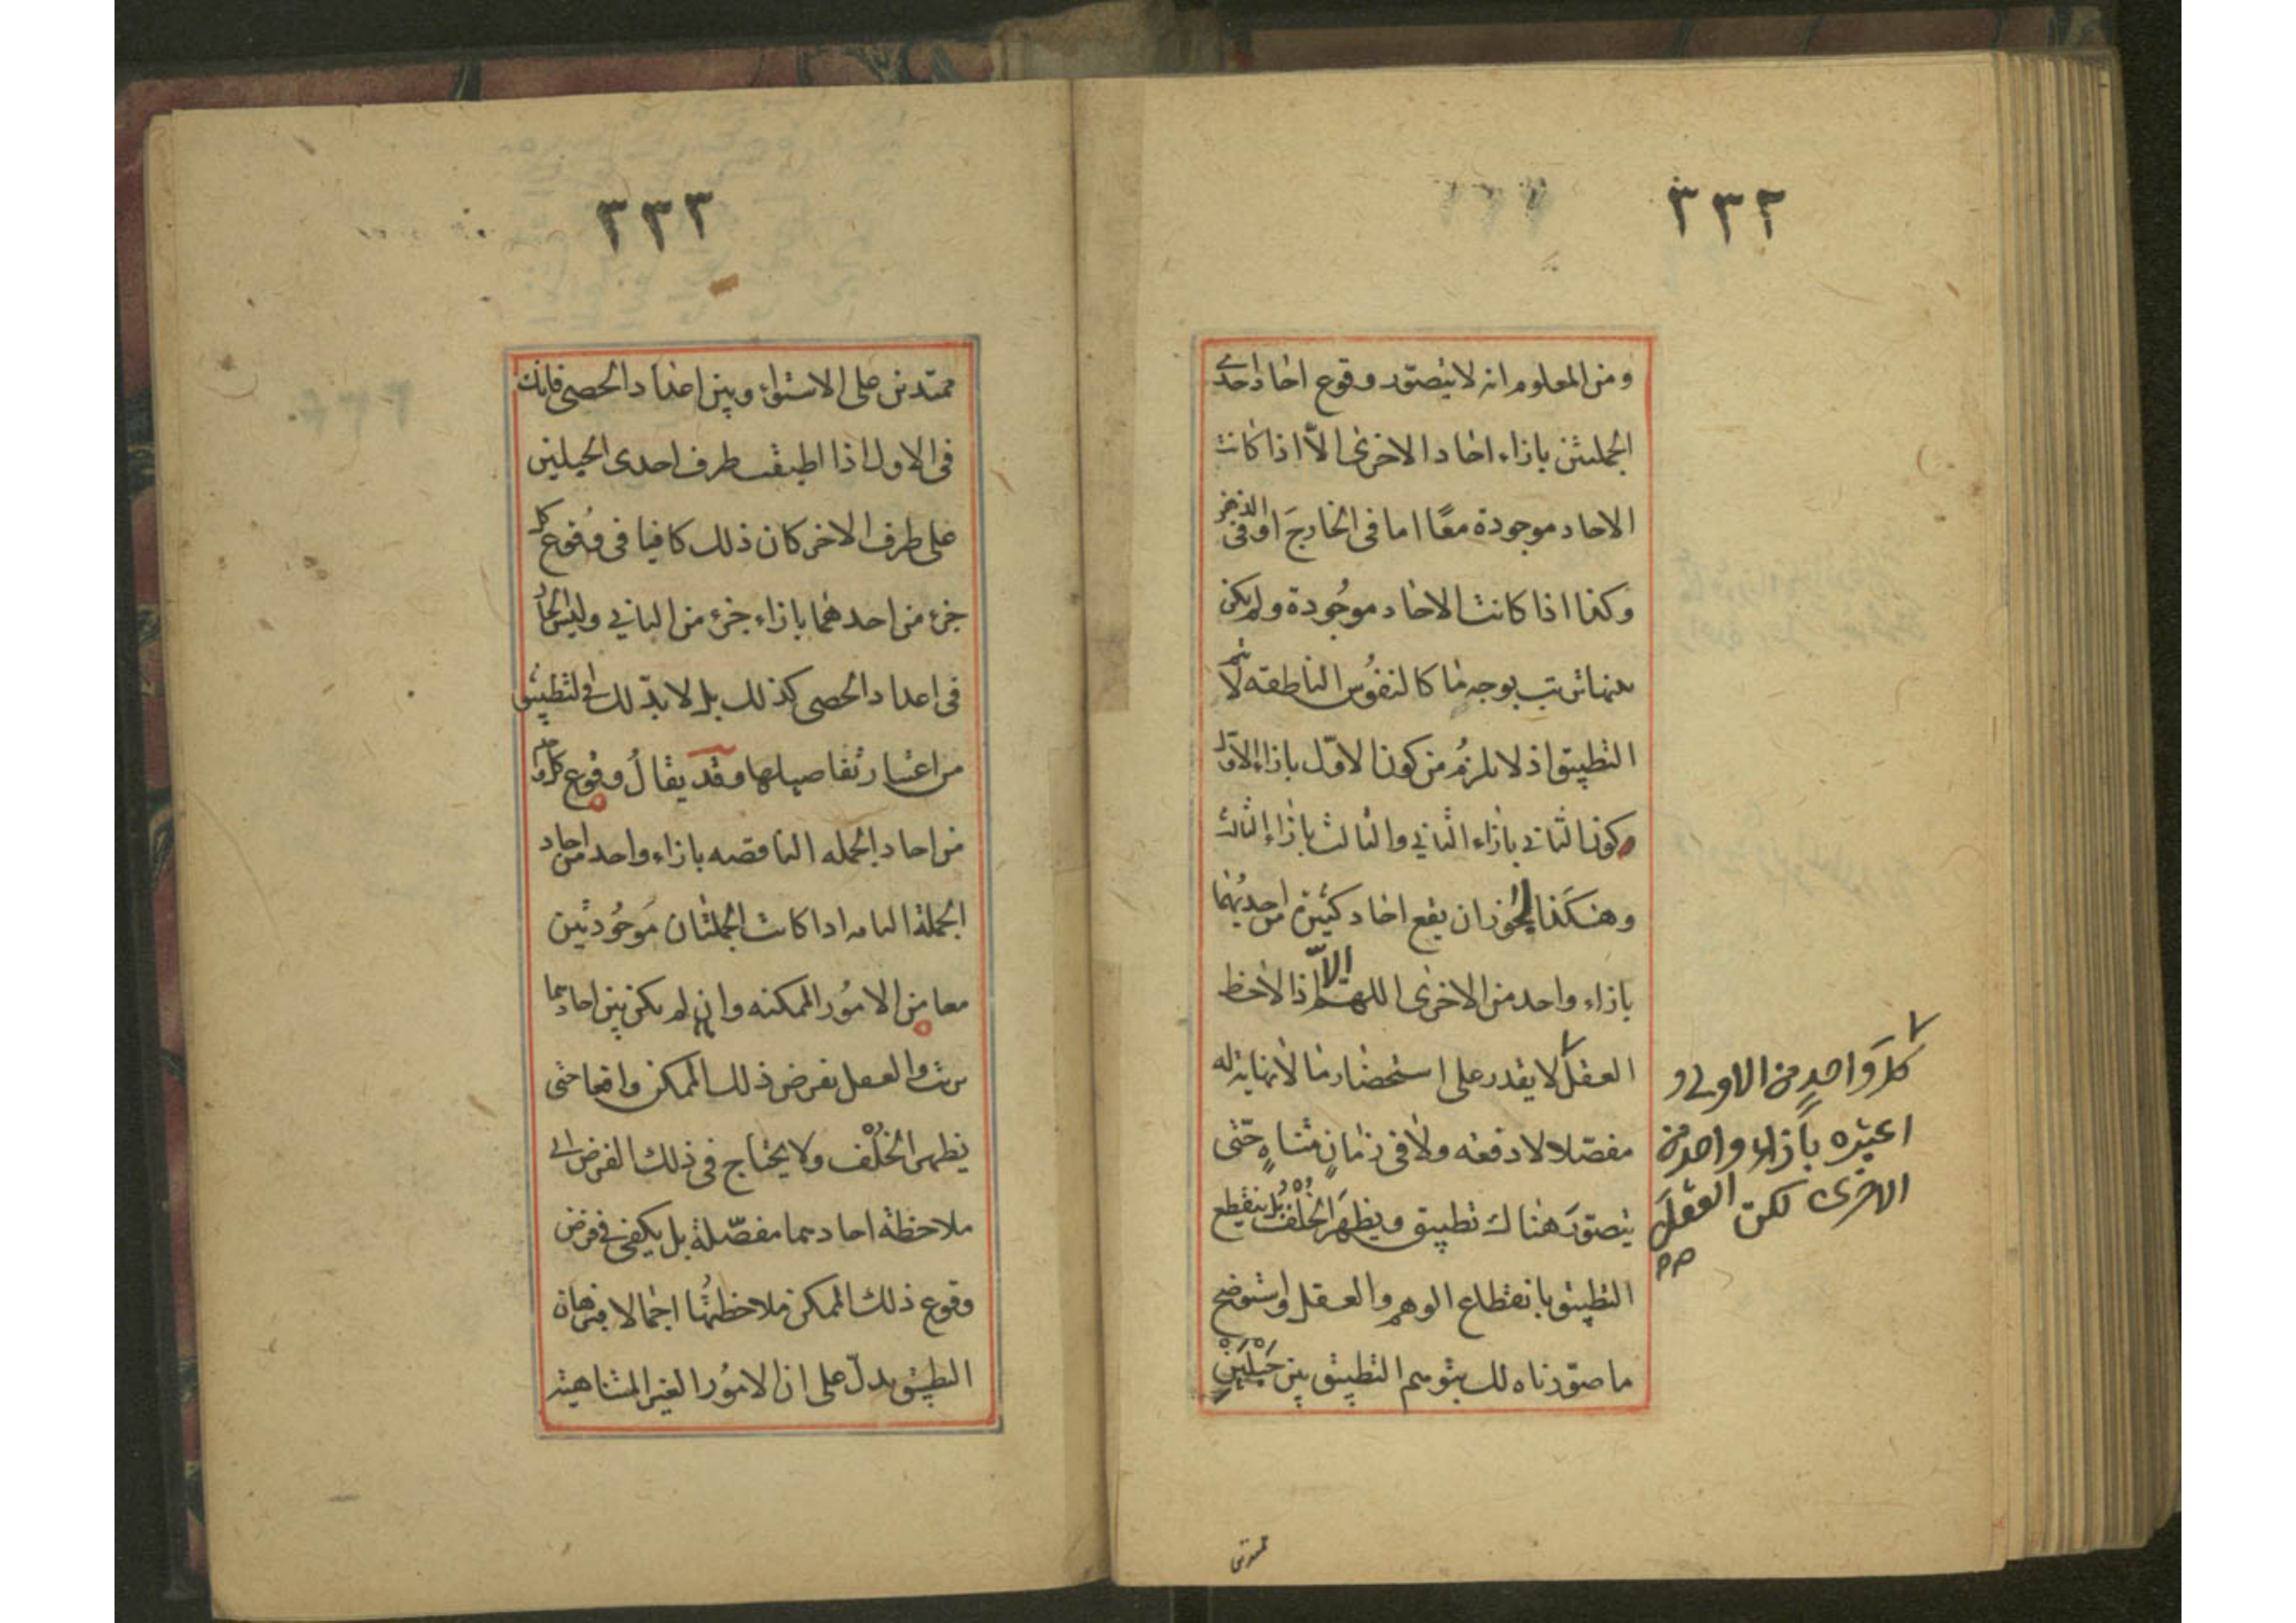 ٣٣٢
ومن المعلوم انه لا يتصور وقوع احاد احدى
الجملتين بازاء احاد الاخرى الّا اذا كانت
الاحاد موجودة معًا اما فى الخارج او فى الذهن
وكذا اذا كانت الاحاد موجُودة ولم يكن
بينها ترتب بوجه ما كالنفوُس الناطقه لا يتم
التطبيق اذ لا يلزمُ من كون الاوّل بازاء الاوّل
وكون الثانى بازاء الثاني والثالث بازاء الثالث
وهكَذا لجواز ان يقع احاد كثيرة من احديهُما
بازاء واحد من الاخرى اللهمّ الّا اذا لاحظ
العقل لا يقدر على استحضار ما لا نهاية له
مفصّلا لا دفعه ولا فى زمانٍ متناهٍ حتى
يتصوّرَ هناك تطبيق ويظهَرَ الخُلْفُ بل ينقطع
التطبيق بانقطاع الوهم والعقل واستوضح
ما صوّرناه لك بتوهم التطبيق بين حَبْلَيْنِ
كلَّ وَاحدٍ من الاولى و
اعتبره بازاء واحدٍ من
الاخرى لكن العقلَ
صح
ممتدين
٣٣٣
ممتدين على الاستواء وبين اعداد الحصى فانك
فى الاول اذا اطبقت طرف احدى الحبلين
على طرف الاخر كان ذلك كافيا فى وُقوُع كل
جزء من احدهما بازاء جزء من الثاني وليسَ الحالُ
فى اعداد الحصى كذلك بل لا بدّ لك فى التطبيق
من اعتبار تفاصيلها وقد يقالُ وقوُع كل واحد
من احاد الجمله الناقصه بازاء واحد من احاد
الجملة التامه اذا كانت الجملتان مَوجُودتين
معا من الامُور الممكنه وان لم يكن بين احادهما
ترتب والعقل يفرض ذلك الممكن واقعا حتى
يظهر الخُلْف ولا يحتاج فى ذلك الفرض الى
ملاحظة احادهما مفصّلة بل يكفى فى فرض
وقوع ذلك الممكن ملاحظتُها اجمالا فبرهان
التطبيق يدلّ على ان الامُور الغير المتناهية